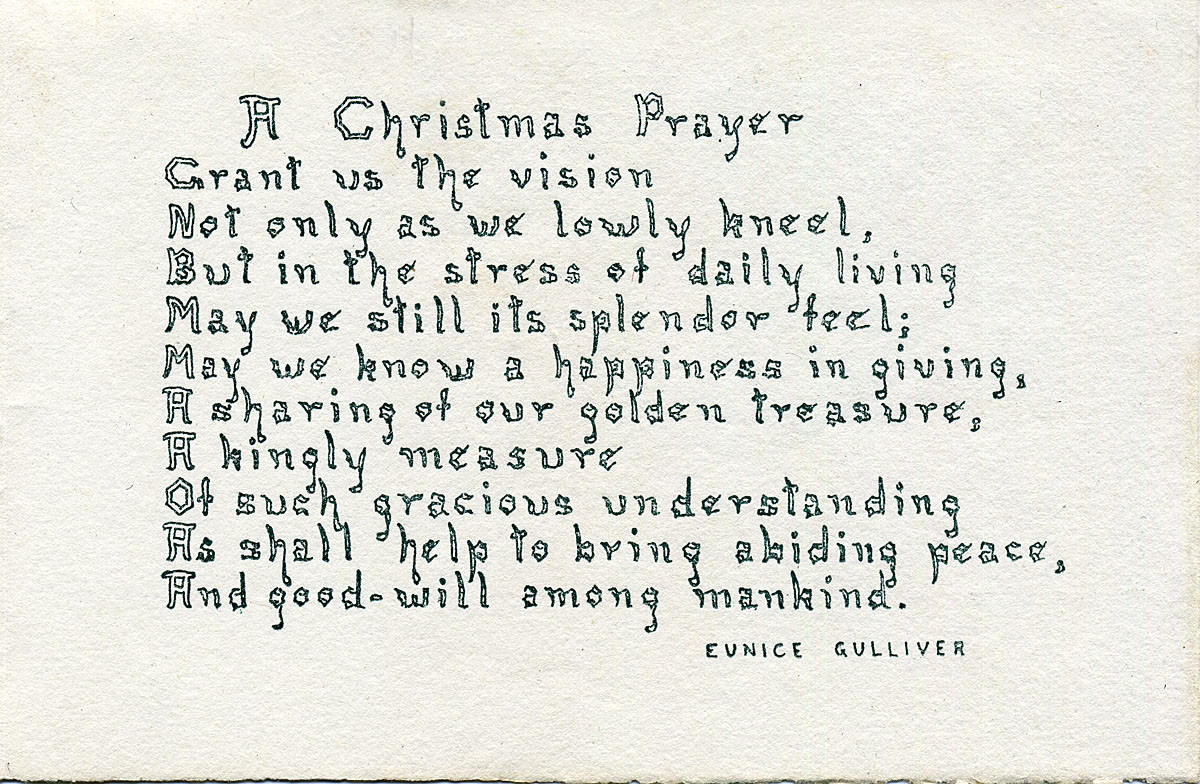 A Christmas Prayer
Grant us the vision
Not only as we lowly kneel,
But in the stress of daily living
May we still its splendor feel;
May we know a happiness in giving,
A sharing of our golden treasure,
A kingly measure
Of such gracious understanding
As shall help to bring abiding peace,
And good-will among mankind.
EUNICE GULLIVER